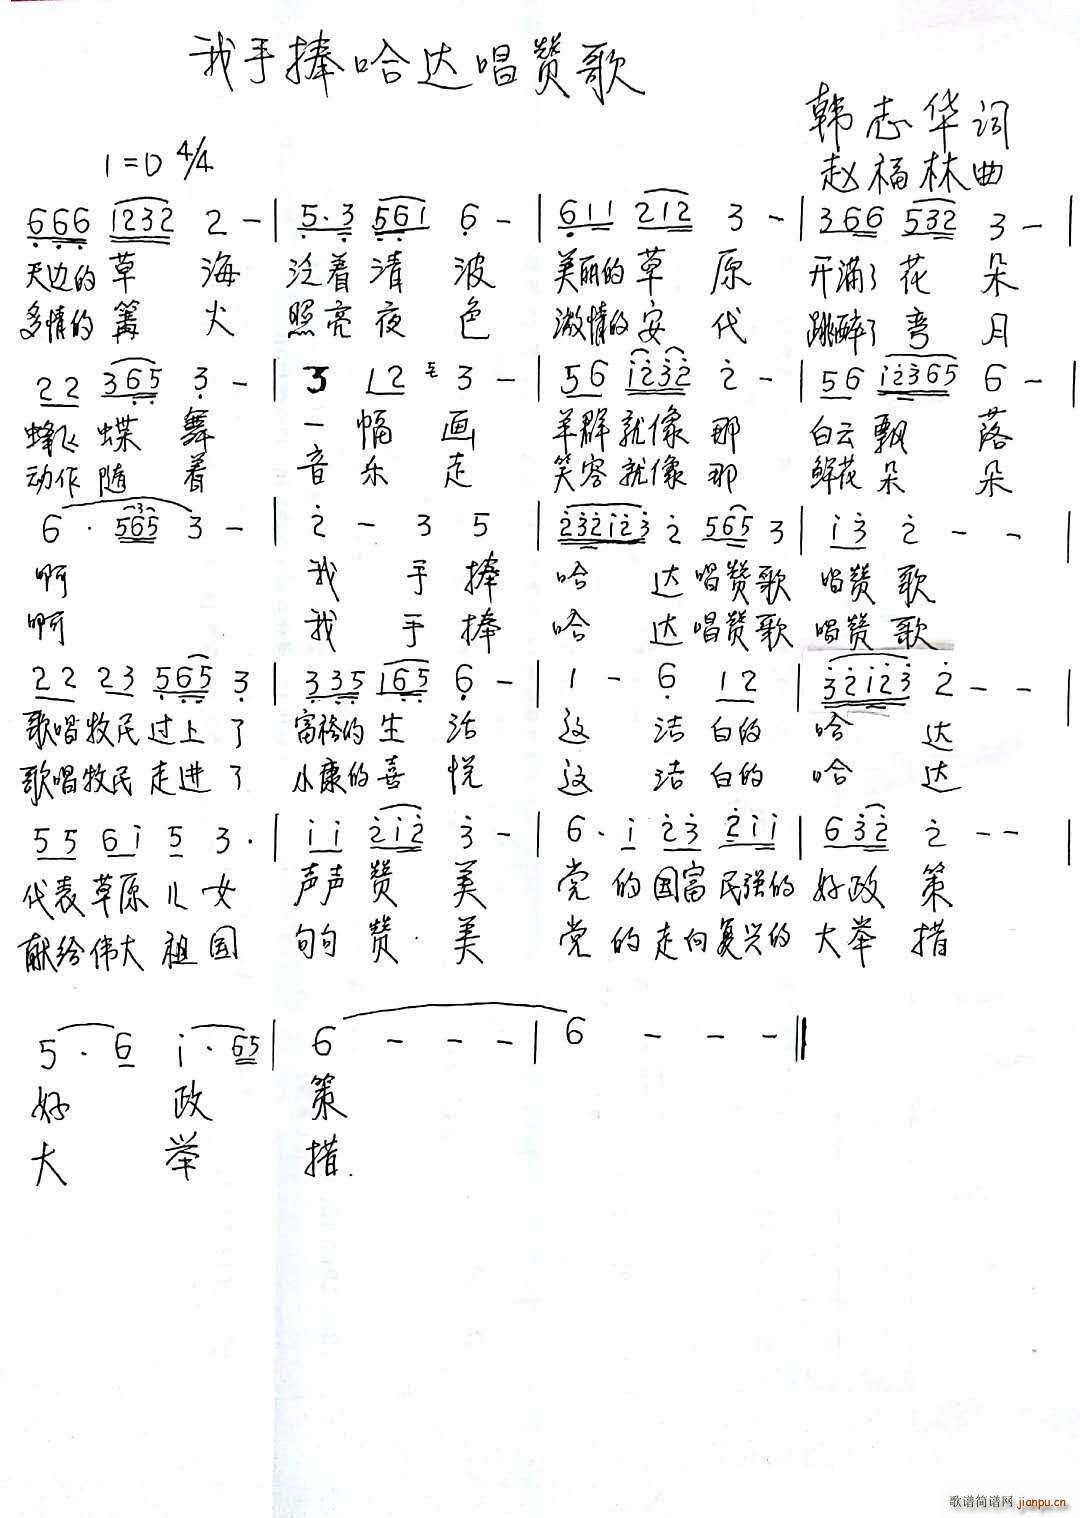 我手捧哈达唱赞歌
韩志华词
1=D 4/4
赵福林曲
666 1232 2 - | 5·3 561 6 - | 611 212 3 - | 366 532 3 - |
天边的草 海 泛着清 波 美丽的草 原 开满了 花 朵
多情的篝 火 照亮夜 色 激情的安 代 跳醉了 弯 月
22 365 3 - | 3 12 3 - | 56 1232 2 - | 56 12365 6 - |
蜂飞蝶 舞 一 幅 画 羊群就像 那 白云飘 落
动作随 着 音 乐 走 笑容就像 那 鲜花朵 朵
6 · 565 3 - | 2 - 3 5 | 232123 2 565 3 | 13 2 - -
啊 我 手 捧 哈 达唱赞歌 唱赞 歌
啊 我 手 捧 哈 达唱赞歌 唱赞 歌
22 23 565 3 | 335 165 6 - | 1 - 6 12 | 32123 2 - - |
歌唱牧民过上了 富裕的生 活 这 洁白的 哈 达
歌唱牧民走进了 小康的喜 悦 这 洁白的 哈 达
55 61 5 3 · | 11 212 3 - | 6·1 23 211 | 632 2 - - |
代表草原儿女 声声赞 美 党 的国富民强的 好政 策
献给伟大祖国 句句赞 美 党 的走向复兴的 大举 措
5 · 6 1 · 65 | 6 - - - | 6 - - - ‖
好 政 策
大 举 措
歌谱简谱网 jianpu.cn